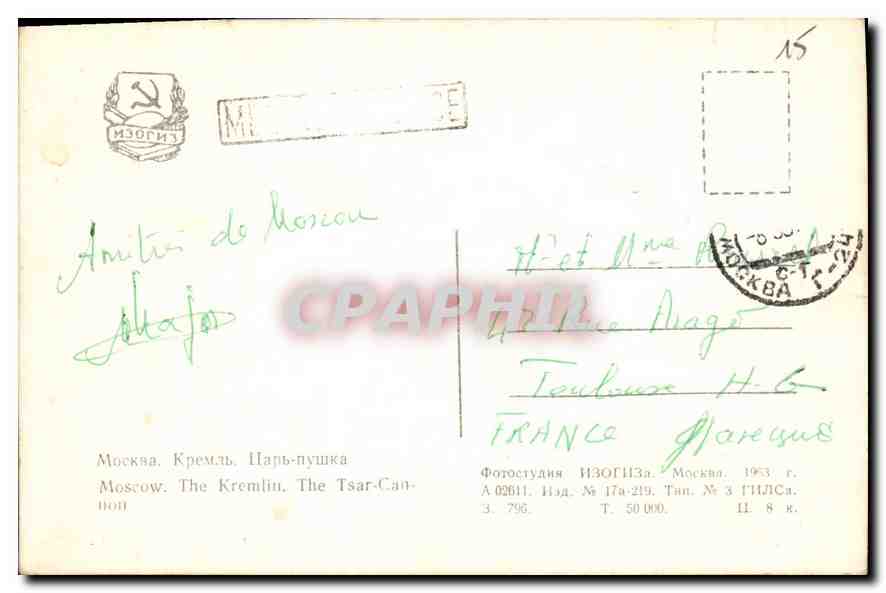 15
ИЗОГИЗ
Amitiés de Moscou
Mr et Mme
МОСКВА Г-24
С-1
CPAPHIL
Rue Arago
Toulouse H-G
FRANCE Франция
Москва. Кремль. Царь-пушка
Moscow. The Kremlin. The Tsar-Can-
non
Фотостудия ИЗОГИЗа. Москва. 1963 г.
А 02611. Изд. № 17а-219. Тип. № 3 ГИЛСа.
З. 796. Т. 50 000. Ц. 8 к.